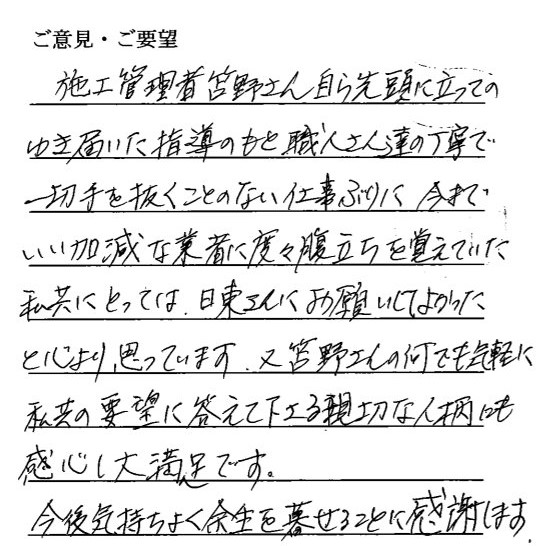 ご意見・ご要望
施工管理者笘野さん自ら先頭に立っての
ゆき届いた指導のもと職人さん達の丁寧で
一切手を抜くことのない仕事ぶりに 今まで
いい加減な業者に度々腹立ちを覚えていた
私共にとっては、日東さんにお願いしてよかった
と心より思っています。又笘野さんの何でも気軽に
私共の要望に答えて下さる親切な人柄にも
感心し大満足です。
今後気持ちよく余生を暮せることに感謝します。